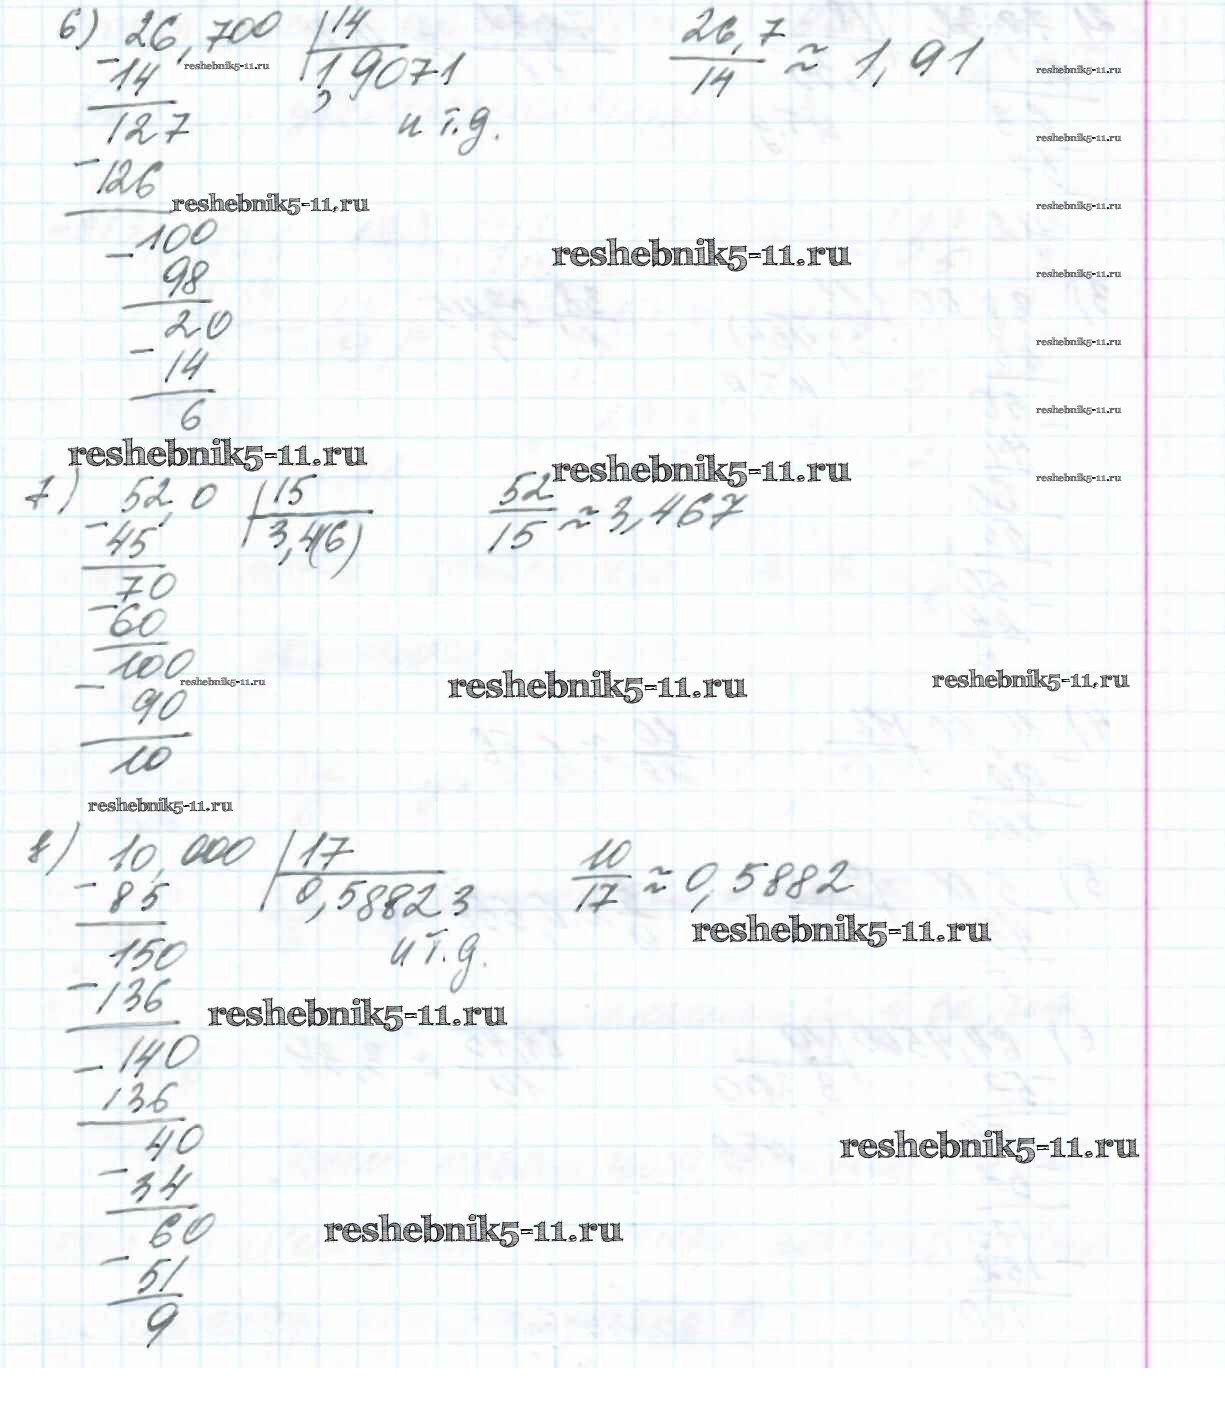 6) 26,700 | 14     26,7/14 ≈ 1,91
- 14 reshebnik5-11.ru 1,9071 reshebnik5-11.ru
127 и т.д. reshebnik5-11.ru
- 126
reshebnik5-11.ru reshebnik5-11.ru
- 100 reshebnik5-11.ru
98 reshebnik5-11.ru
20
- 14 reshebnik5-11.ru
6 reshebnik5-11.ru
reshebnik5-11.ru reshebnik5-11.ru reshebnik5-11.ru
7) 52,0 | 15     52/15 ≈ 3,467
- 45 3,4(6)
70
- 60
100
- 90 reshebnik5-11.ru reshebnik5-11.ru reshebnik5-11.ru
10
reshebnik5-11.ru
8) 10,000 | 17     10/17 ≈ 0,5882
- 85 0,58823 reshebnik5-11.ru
150 и т.д.
- 136 reshebnik5-11.ru
- 140
136
40 reshebnik5-11.ru
- 34
60 reshebnik5-11.ru
- 51
9